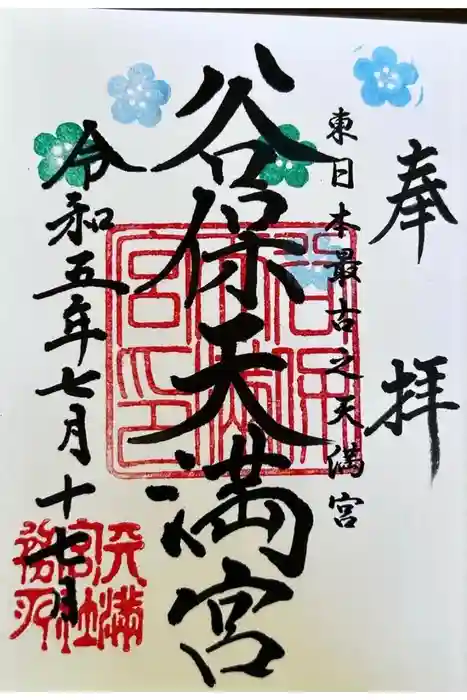 奉拝
東日本最古之天満宮
谷保天満宮
令和五年七月十七月
天満宮社務所